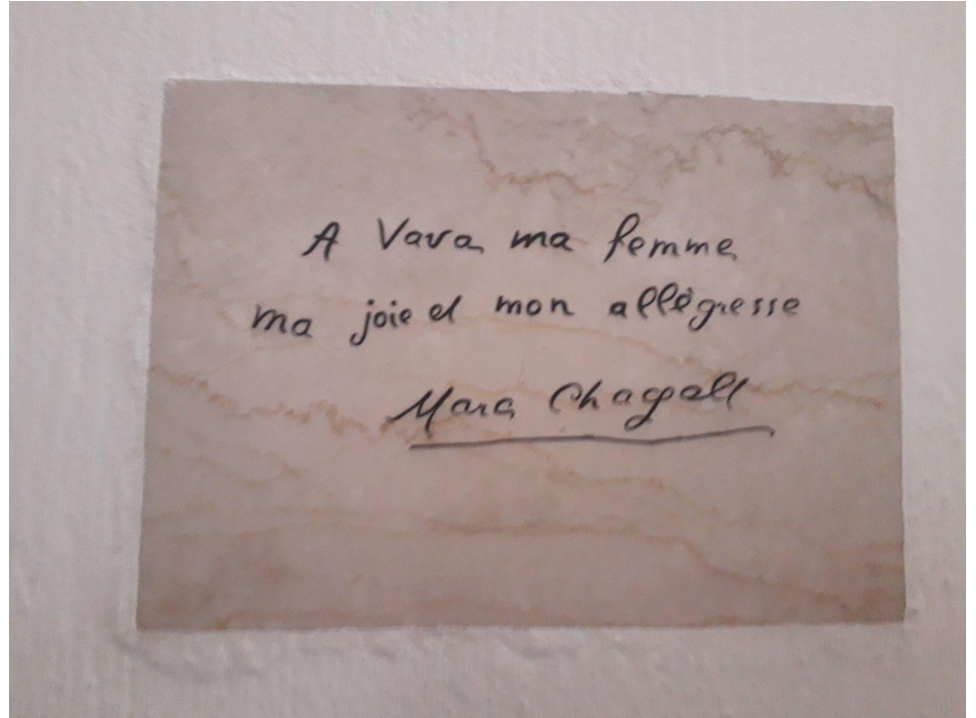 A Vava ma femme
ma joie et mon allégresse
Marc Chagall